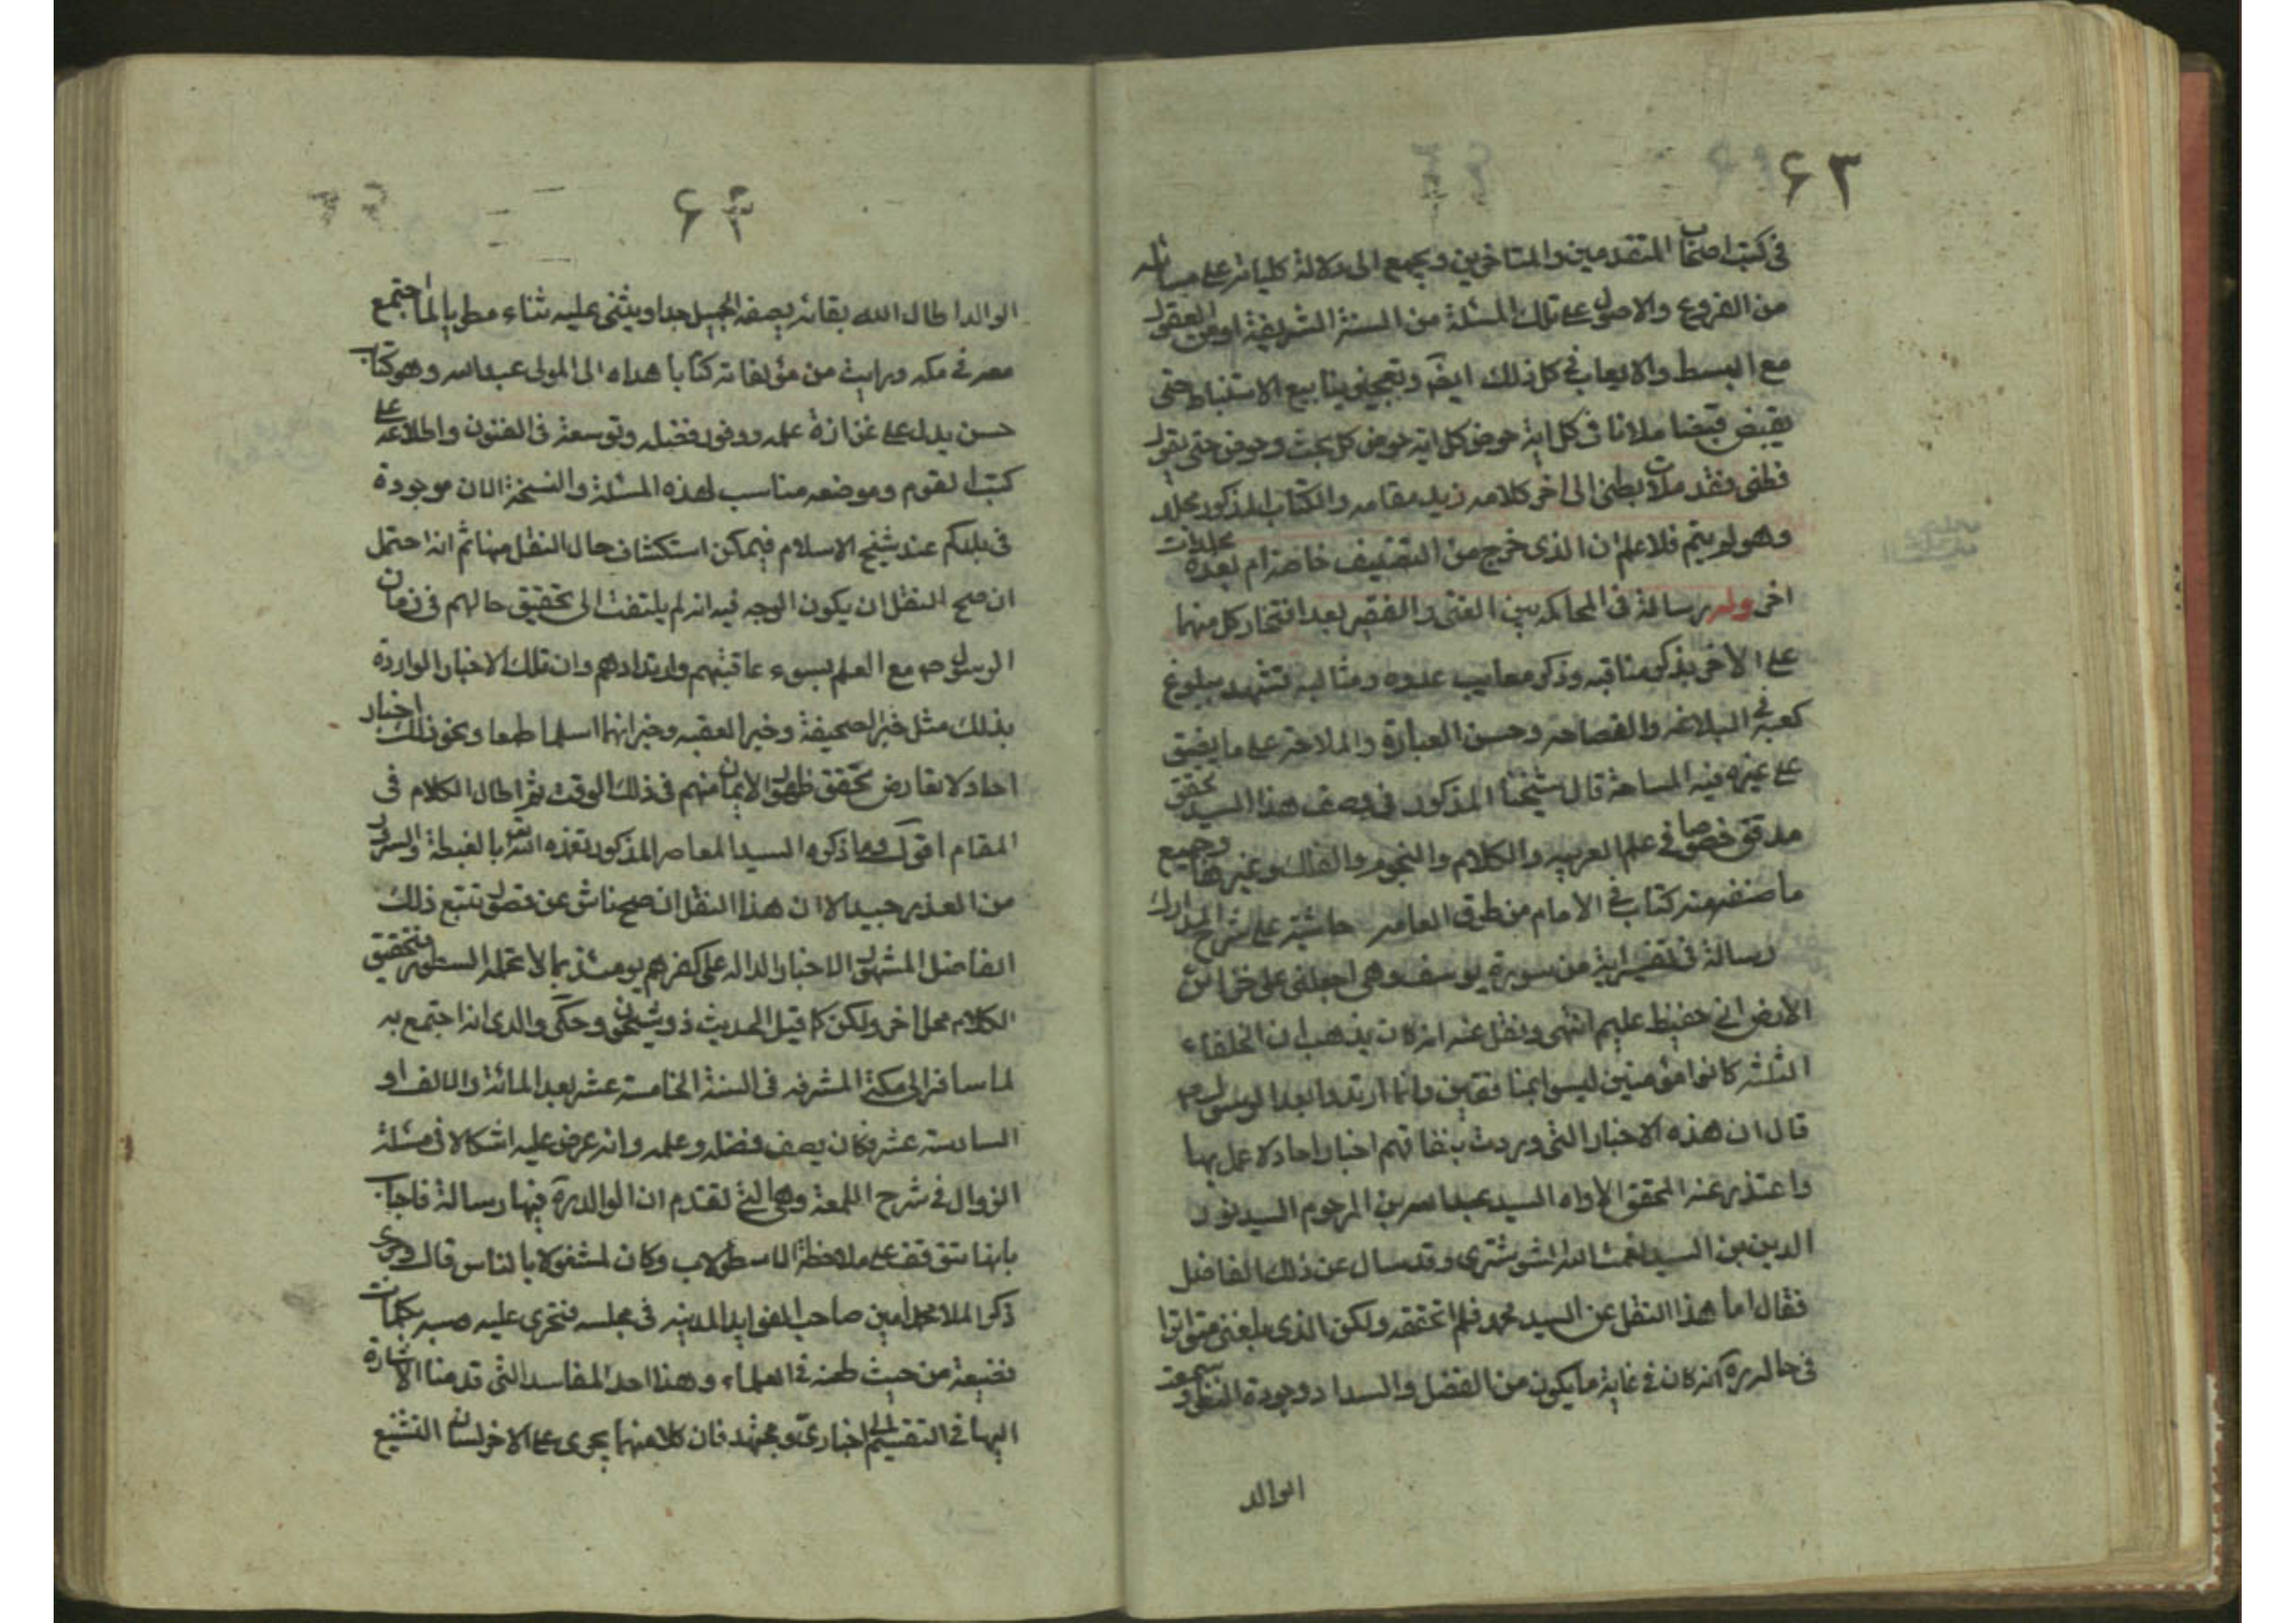 ۶۳
في كتب اصحابنا المتقدمين والمتاخرين ويجمع الى دلالة كلياته على مسائله
من الفروع والاصول على تلك المسئلة من السنة الشريفة او من العقول
مع البسط والايعاب في كل ذلك ايضا وتفجيز ينابيع الاستنباط حتى
يقبض قبضا ملانا في كل اية خوض كل اية خوض كل بحث وحوض حتى يقول
قطني فقد ملات بطني الى اخر كلامه زيد مقامه والكتاب المذكور مجلد
وهو لم يتم فلا اعلم ان الذي خرج من التصنيف خاصة ام بعده مجلدات
اخر وله رسالة في المحاكمه بين الغني والفقير بعد افتخار كل منهما
على الاخر بذكر مناقبه وذكر معايب عدوه ومثالبه تشهد ببلوغ
كعبه في البلاغه والفصاحه وحسن العبارة والملاحة على ما يضيق
على غيره فيه المساحة قال شيخنا المذكور في وصف هذا السيد محقق
مدقق خصوصا في علم العربيه والكلام والنجوم والفلك وغيرها وجميع
ما صنفه منه كتاب في الامام من طرق العامه حاشية على شرح المدارك
رسالة في تفسير اية من سورة يوسف وهي اجعلني على خزائن
الارض اني حفيظ عليم انتهى ونقل عنه انه كان يذهب ان الخلفاء
الثلثه كانوا مؤمنين ليسوا بمنافقين وانما ارتدوا بعد الرسول ص
قال ان هذه الاخبار التي وردت بنفاقهم اخبار احاد لا عمل بها
واعتذر عنه المحقق الاواه السيد عبد الله بن المرحوم السيد نور
الدين بن السيد نعمت الله الشوشتري وقد سال عن ذلك الفاضل
فقال اما هذا النقل عن السيد محمد فلم اتحققه ولكن الذي بلغني متواترا
في حاله ره انه كان في غاية ما يكون من الفضل والسداد وجودة النظر وسمعت
الوالد
۶۴
الوالد اطال الله بقائه يصفه الجميل جدا ويثني عليه ثناء مطريا لما اجتمع
معه في مكه ورايت من مؤلفاته كتابا هداه الى المولى عبد الله وهو كتاب
حسن يدل على غزازة علمه ووفور فضله وتوسعه في الفنون واطلاعه على
كتب القوم وموضعه مناسب لهذه المسئلة والنسخة الان موجودة
في بلدكم عند شيخ الاسلام فيمكن استكشاف حال النقل منها ثم انه احتمل
ان صح النقل ان يكون الوجه فيه انه لم يلتفت الى تحقيق حالهم في زمان
الرسول ص مع العلم بسوء عاقبتهم وارتدادهم وان تلك الاخبار الواردة
بذلك مثل خبر الصحيفة وخبر العقبه وخبر انهما اسلما طمعا ونحو ذلك اخبار
احاد لا تعارض تحقق ظهور الايمان منهم في ذلك الوقت ثم اطال الكلام في
المقام اقول وما ذكره السيد المعاصر المذكور تغذه الله بالغبطة والسرور
من العذر جيد الا ان هذا النقل ان صح ناش عن قصور تتبع ذلك
الفاضل المشهور الاخبار الداله على كفرهم يومئذ بما لا تحمله السطور ولتحقيق
الكلام محل اخر ولكن كما قيل الحديث ذو شجون وحكى والدي انه اجتمع به
لما سافر الى مكة المشرفه في السنة الخامسة عشر بعد المائة والالف او
السادسة عشر فكان يصف فضله وعلمه وانه عرض عليه اشكالا في مسئلة
الزوال في شرح اللمعة وهي التي تقدم ان الوالد ره فيها رسالة فاجاب
بانها تتوقف على ملاحظة الاسطرلاب وكان مشغولا بالناس قال وجرى
ذكر الملا محمد امين صاحب الفوايد المدنيه في مجلسه فتجرى عليه بكلمات
فضيعة من حيث طعنه في العلماء وهذا احد المفاسد التي قدمنا الاشارة
اليها في التقسيم الى اخباري ومجتهد فان كلا منهما يجرى على الاخر لسان التشنيع